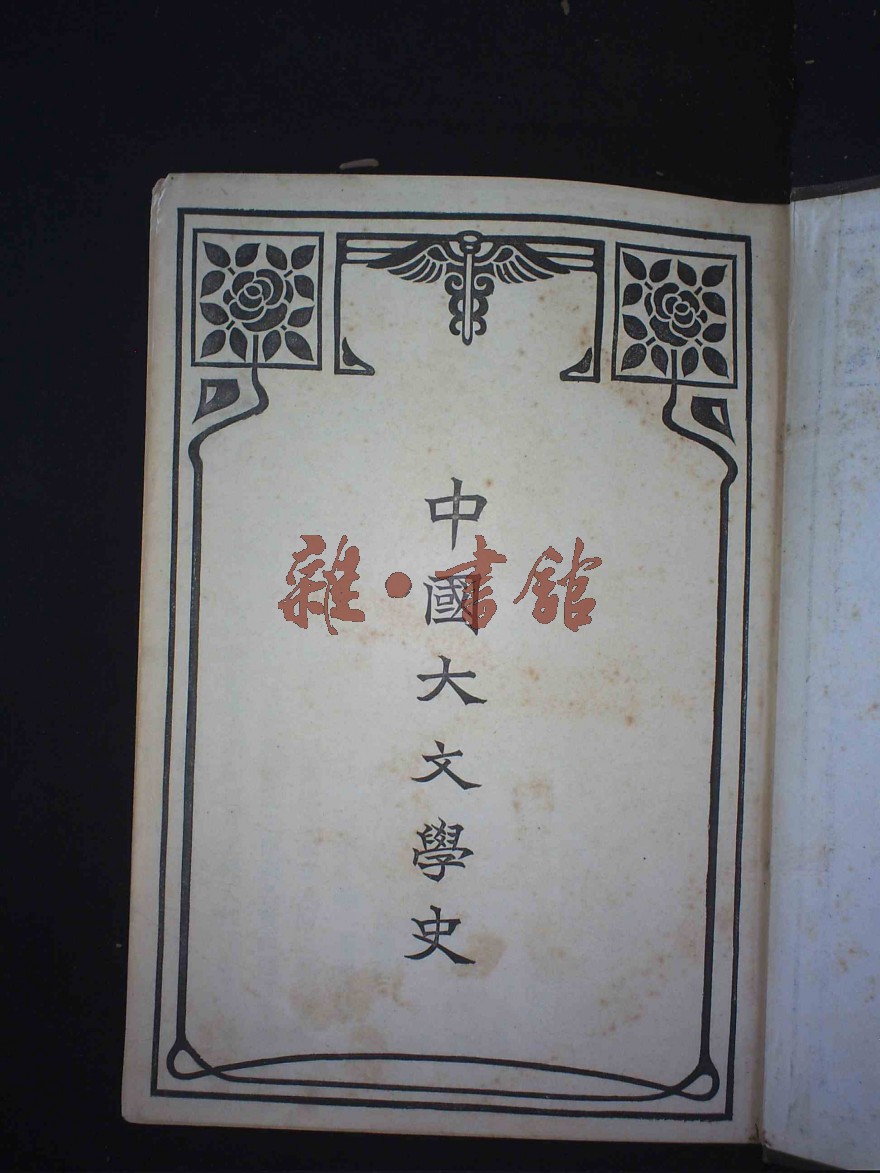 中國大文學史
雜·書館